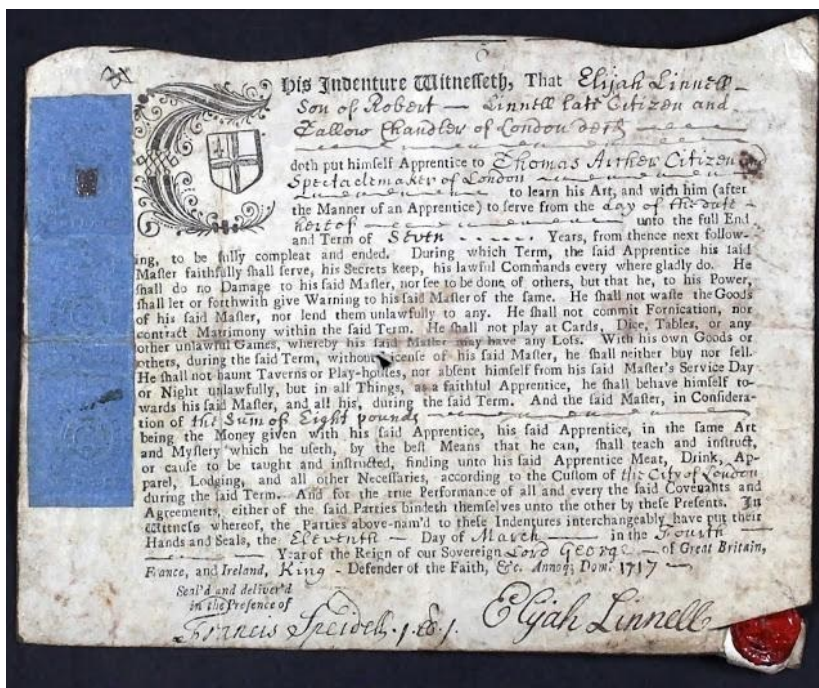 his Indenture Witnesseth, That Elijah Linnell
Son of Robert — Linnell late Citizen and
Tallow Chandler of London decd
doth put himself Apprentice to Thomas Arther Citizen
Spectaclemaker of London
to learn his Art, and with him (after
the Manner of an Apprentice) to serve from the day of the date
hereof unto the full End
and Term of Seven Years, from thence next follow-
ing, to be fully compleat and ended. During which Term, the said Apprentice his said
Master faithfully shall serve, his Secrets keep, his lawful Commands every where gladly do. He
shall do no Damage to his said Master, nor see to be done of others, but that he, to his Power,
shall let or forthwith give Warning to his said Master of the same. He shall not waste the Goods
of his said Master, nor lend them unlawfully to any. He shall not commit Fornication, nor
contract Matrimony within the said Term. He shall not play at Cards, Dice, Tables, or any
other unlawful Games, whereby his said Master may have any Loss. With his own Goods or
others, during the said Term, without License of his said Master, he shall neither buy nor sell.
He shall not haunt Taverns or Play-houses, nor absent himself from his said Master's Service Day
or Night unlawfully, but in all Things, as a faithful Apprentice, he shall behave himself to-
wards his said Master, and all his, during the said Term. And the said Master, in Considera-
tion of the Sum of Eight pounds
being the Money given with his said Apprentice, his said Apprentice, in the same Art
and Mystery which he useth, by the best Means that he can, shall teach and instruct,
or cause to be taught and instructed, finding unto his said Apprentice Meat, Drink, Ap-
parel, Lodging, and all other Necessaries, according to the Custom of the City of London
during the said Term. And for the true Performance of all and every the said Covenants and
Agreements, either of the said Parties bindeth themselves unto the other by these Presents. In
Witness whereof, the Parties above-nam'd to these Indentures interchangeably have put their
Hands and Seals, the Eleventh — Day of March — in the Fourth
Year of the Reign of our Sovereign Lord George — of Great Britain,
France, and Ireland, King - Defender of the Faith, &c. Annoq; Dom. 1717
Seal'd and deliver'd
in the Presence of
Francis Speidell
Elijah Linnell